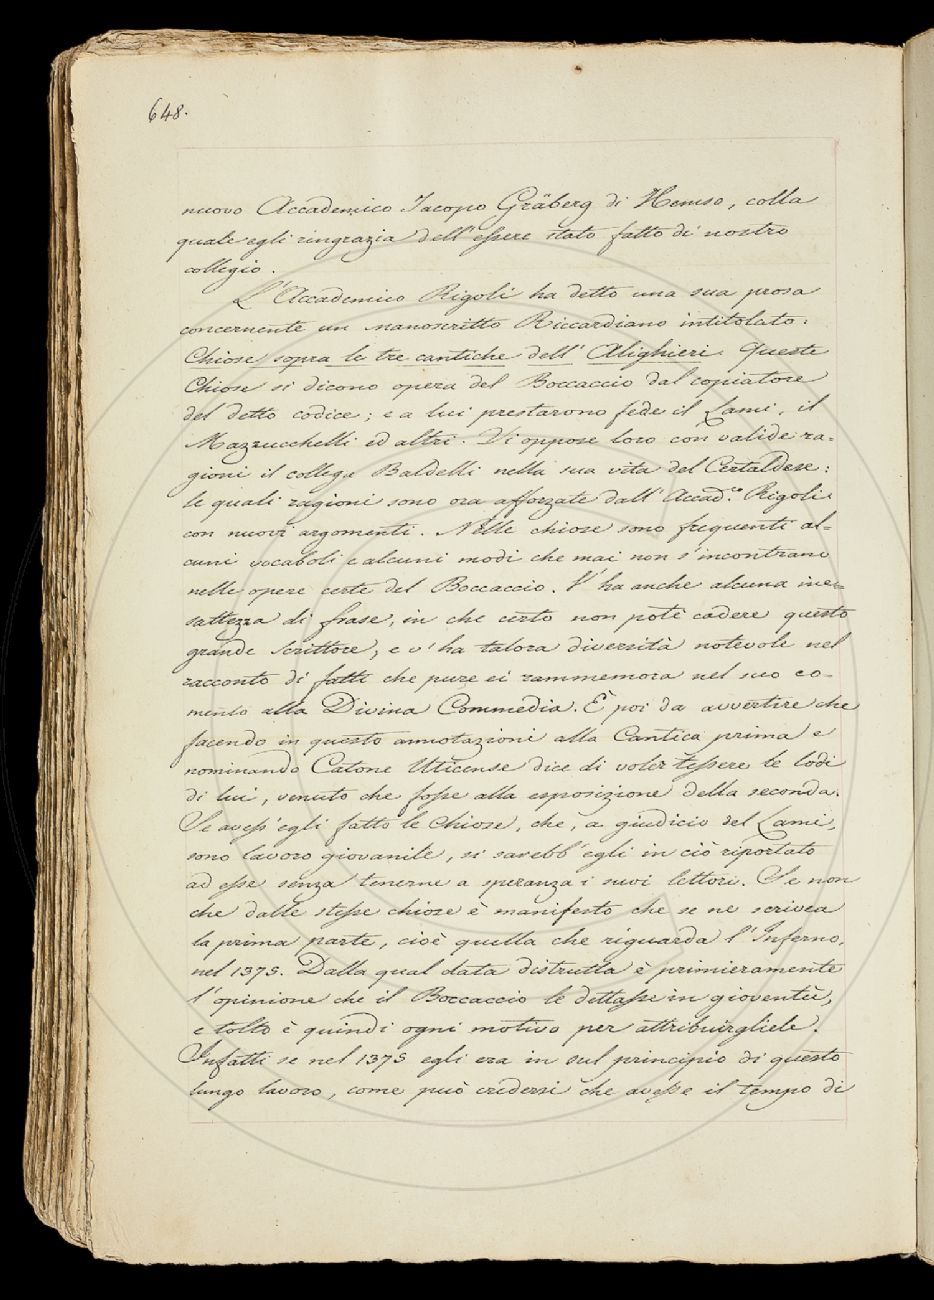 648.
nuovo Accademico Iacopo Gräberg di Hemso, colla
quale egli ringrazia dell'essere stato fatto di nostro
collegio.
L'Accademico Rigoli ha detto una sua prosa
concernente un manoscritto Riccardiano intitolato:
Chiose sopra le tre cantiche dell'Alighieri. Queste
Chiose si dicono opera del Boccaccio dal copiatore
del detto codice; e a lui prestarono fede il Lami, il
Mazzucchelli ed altri. Vi oppose loro con valide ra-
gioni il collega Baldelli nella sua vita del Certaldese:
le quali ragioni sono ora afforzate dall'Accad.co Rigoli
con nuovi argomenti. Nelle chiose sono frequenti al-
cuni vocaboli e alcuni modi che mai non s'incontrano
nelle opere certe del Boccaccio. V'ha anche alcuna ine-
sattezza di frase, in che certo non potè cadere questo
grande scrittore; e v'ha talora diversità notevole nel
racconto di fatti che pure ei rammemora nel suo co-
mento alla Divina Commedia. È poi da avvertire che
facendo in questo annotazioni alla Cantica prima e
nominando Catone Uticense dice di voler tessere le lodi
di lui, venuto che fosse alla esposizione della seconda.
Se avess'egli fatto le Chiose, che, a giudicio del Lami,
sono lavoro giovanile, si sarebb'egli in ciò riportato
ad esse senza tenerne a speranza i suoi lettori. Se non
che dalle stesse chiose è manifesto che se ne scrivea
la prima parte, cioè quella che riguarda l'Inferno,
nel 1375. Dalla qual data distrutta è primieramente
l'opinione che il Boccaccio le dettasse in gioventù,
e tolto è quindi ogni motivo per attribuirgliele.
Infatti se nel 1375 egli era in sul principio di questo
lungo lavoro, come può credersi che avesse il tempo di